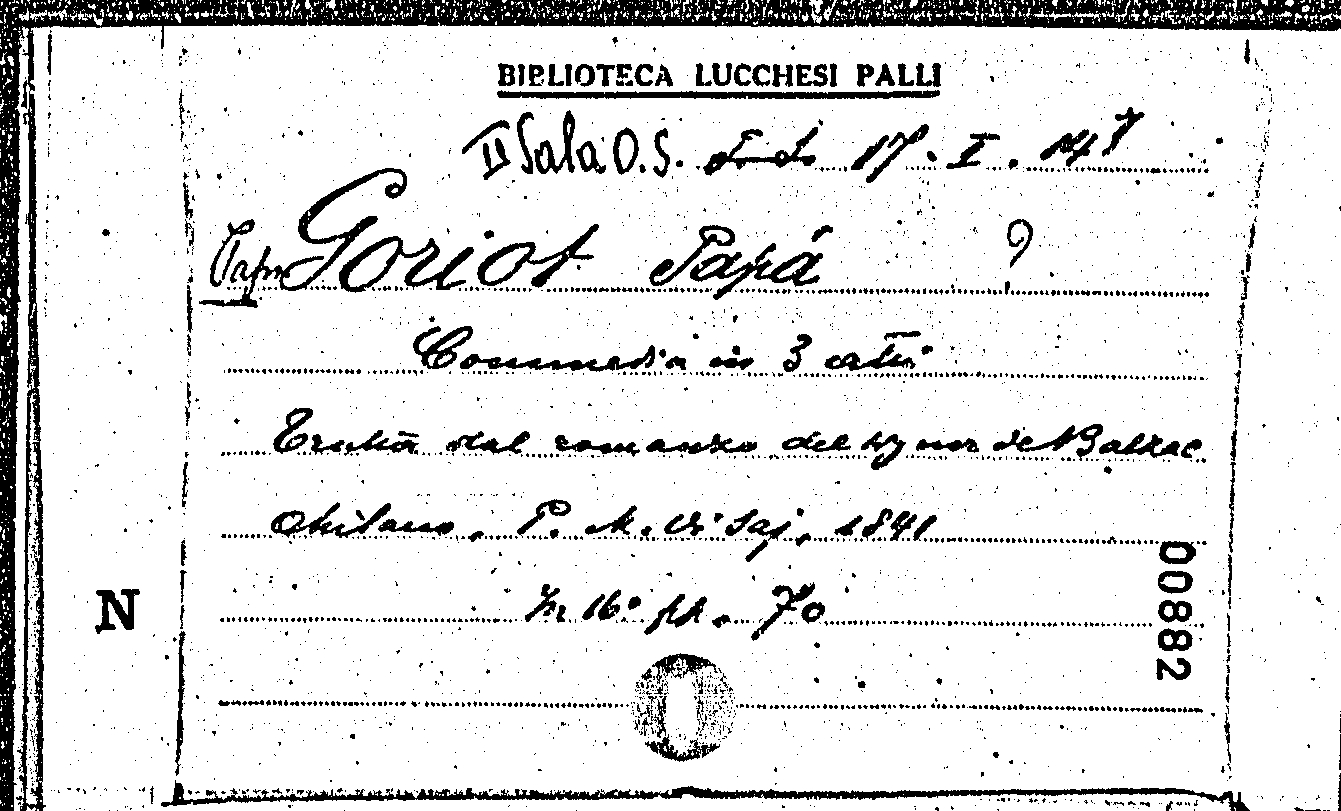 BIBLIOTECA LUCCHESI PALLI
II Sala O.S. 17. I. 14
Papà Goriot Papá ?
Commedia in 3 atti
Tratta dal romanzo del Signor de Balzac
Milano, P. M. Visaj, 1841
In 16° pp. 70
N
00882